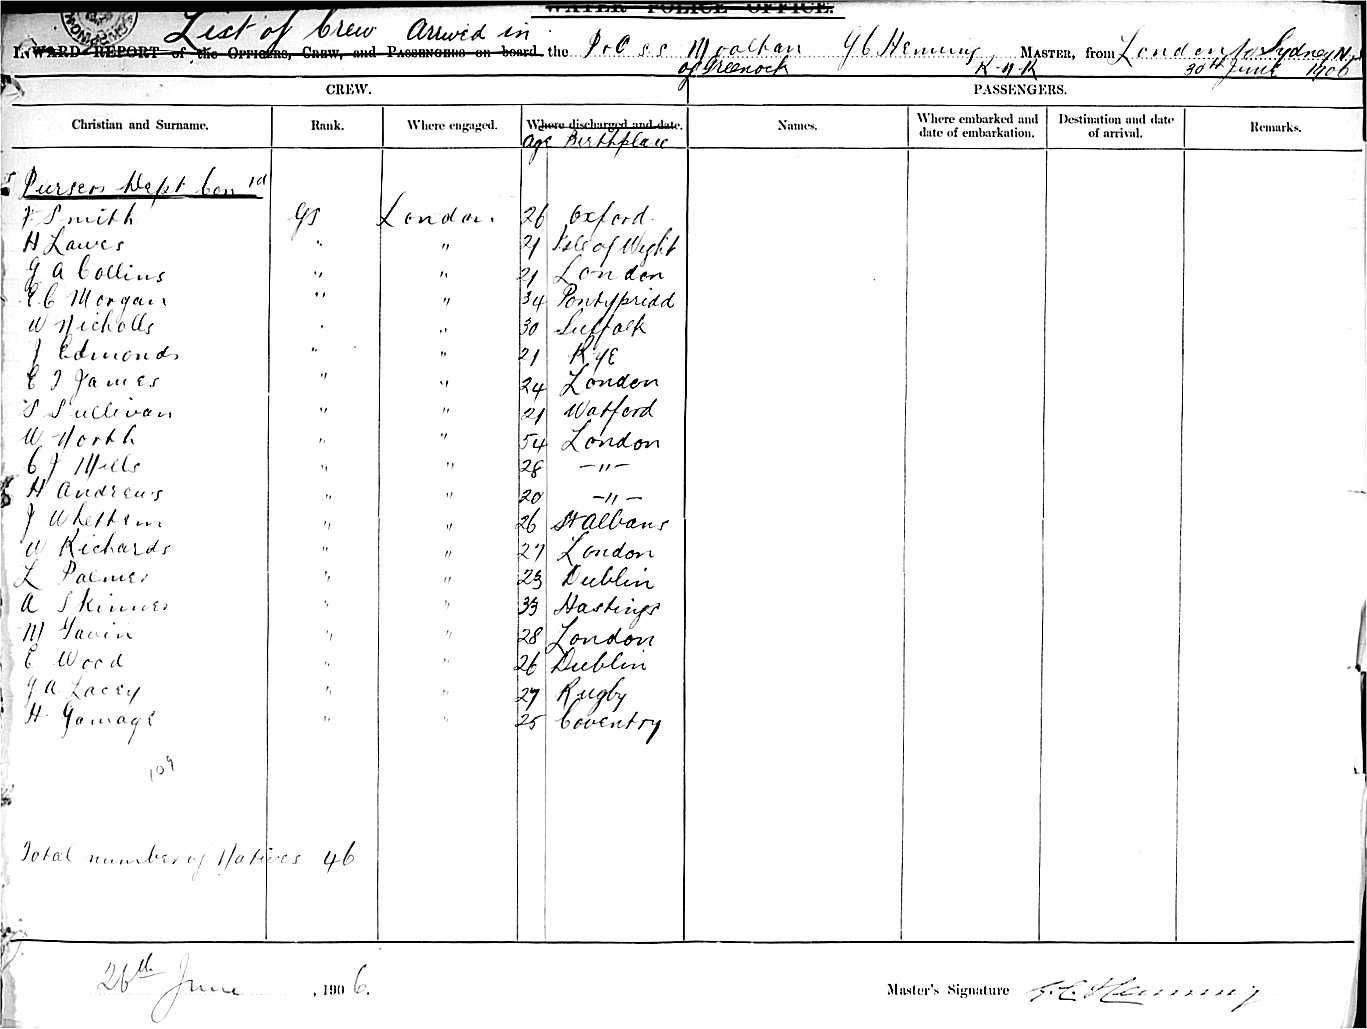 WATER POLICE OFFICE.
List of Crew Arrived in
INWARD REPORT of the OFFICERS, CREW, and PASSENGERS on board the P & O s s Mooltan G C Henning MASTER, from London to Sydney N.S
of Greenock R.N.R 30th June 1906
CREW. PASSENGERS.
Christian and Surname. Rank. Where engaged. Where discharged and date. Names. Where embarked and date of embarkation. Destination and date of arrival. Remarks.
Age Birthplace
Pursers Dept Con td
F Smith GS London. 26 Oxford.
H Lawes " " 21 Isle of Wight
G A Collins " " 21 London
E C Morgan " " 34 Pontypridd
W Nicholls " " 30 Suffolk
J Edmonds " " 21 Rye
E J James " " 24 London
S Sullivan " " 21 Watford
W North " " 54 London
C J Mills " " 28 — " —
H Andrews " " 20 — " —
J Whettam " " 26 St Albans
W Richards " " 27 London
L Palmer " " 23 Dublin
A Skinner " " 33 Hastings
M Gavin " " 28 London
E Wood " " 26 Dublin
G A Lacey " " 27 Rugby
H Gamage " " 25 Coventry
109
Total number of Natives 46
26th June, 1906.
Master's Signature G.C. Henning